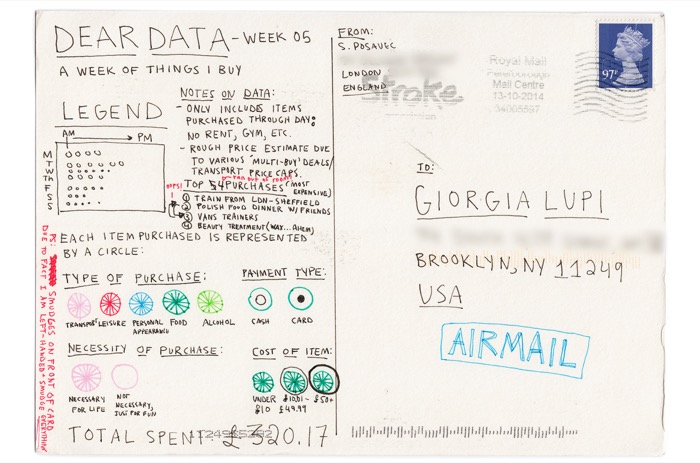 DEAR DATA - WEEK 05
A WEEK OF THINGS I BUY
LEGEND
AM → PM
M
T
W
Th
F
S
S
NOTES ON DATA:
- ONLY INCLUDES ITEMS
PURCHASED THROUGH DAY:
NO RENT, GYM, ETC.
- ROUGH PRICE ESTIMATE DUE
TO VARIOUS 'MULTI-BUY' DEALS/
TRANSPORT PRICE CAPS.
RAN OUT OF ROOM!
OOPS!
TOP 54 PURCHASES (MOST
EXPENSIVE)
① TRAIN FROM LDN-SHEFFIELD
② POLISH FOOD DINNER W/FRIENDS
③ VANS TRAINERS
④ BEAUTY TREATMENT (WAY...AHEM)
EACH ITEM PURCHASED IS REPRESENTED
BY A CIRCLE:
TYPE OF PURCHASE:
TRANSPORT
LEISURE
PERSONAL
APPEARANCE
FOOD
ALCOHOL
PAYMENT TYPE:
CASH
CARD
NECESSITY OF PURCHASE:
NECESSARY
FOR LIFE
NOT
NECESSARY,
JUST FOR FUN
COST OF ITEM:
UNDER
£10
£10.01-
£49.99
£50+
TOTAL SPENT: £320.17
PS: SMUDGES ON FRONT OF CARD
DUE TO FACT I AM LEFT-HANDED + SMUDGE EVERYTHING
FROM:
S. POSAVEC
LONDON
ENGLAND
Stroke
Royal Mail
Mail Centre
13-10-2014
34065587
97P
TO:
GIORGIA LUPI
BROOKLYN, NY 11249
USA
AIRMAIL